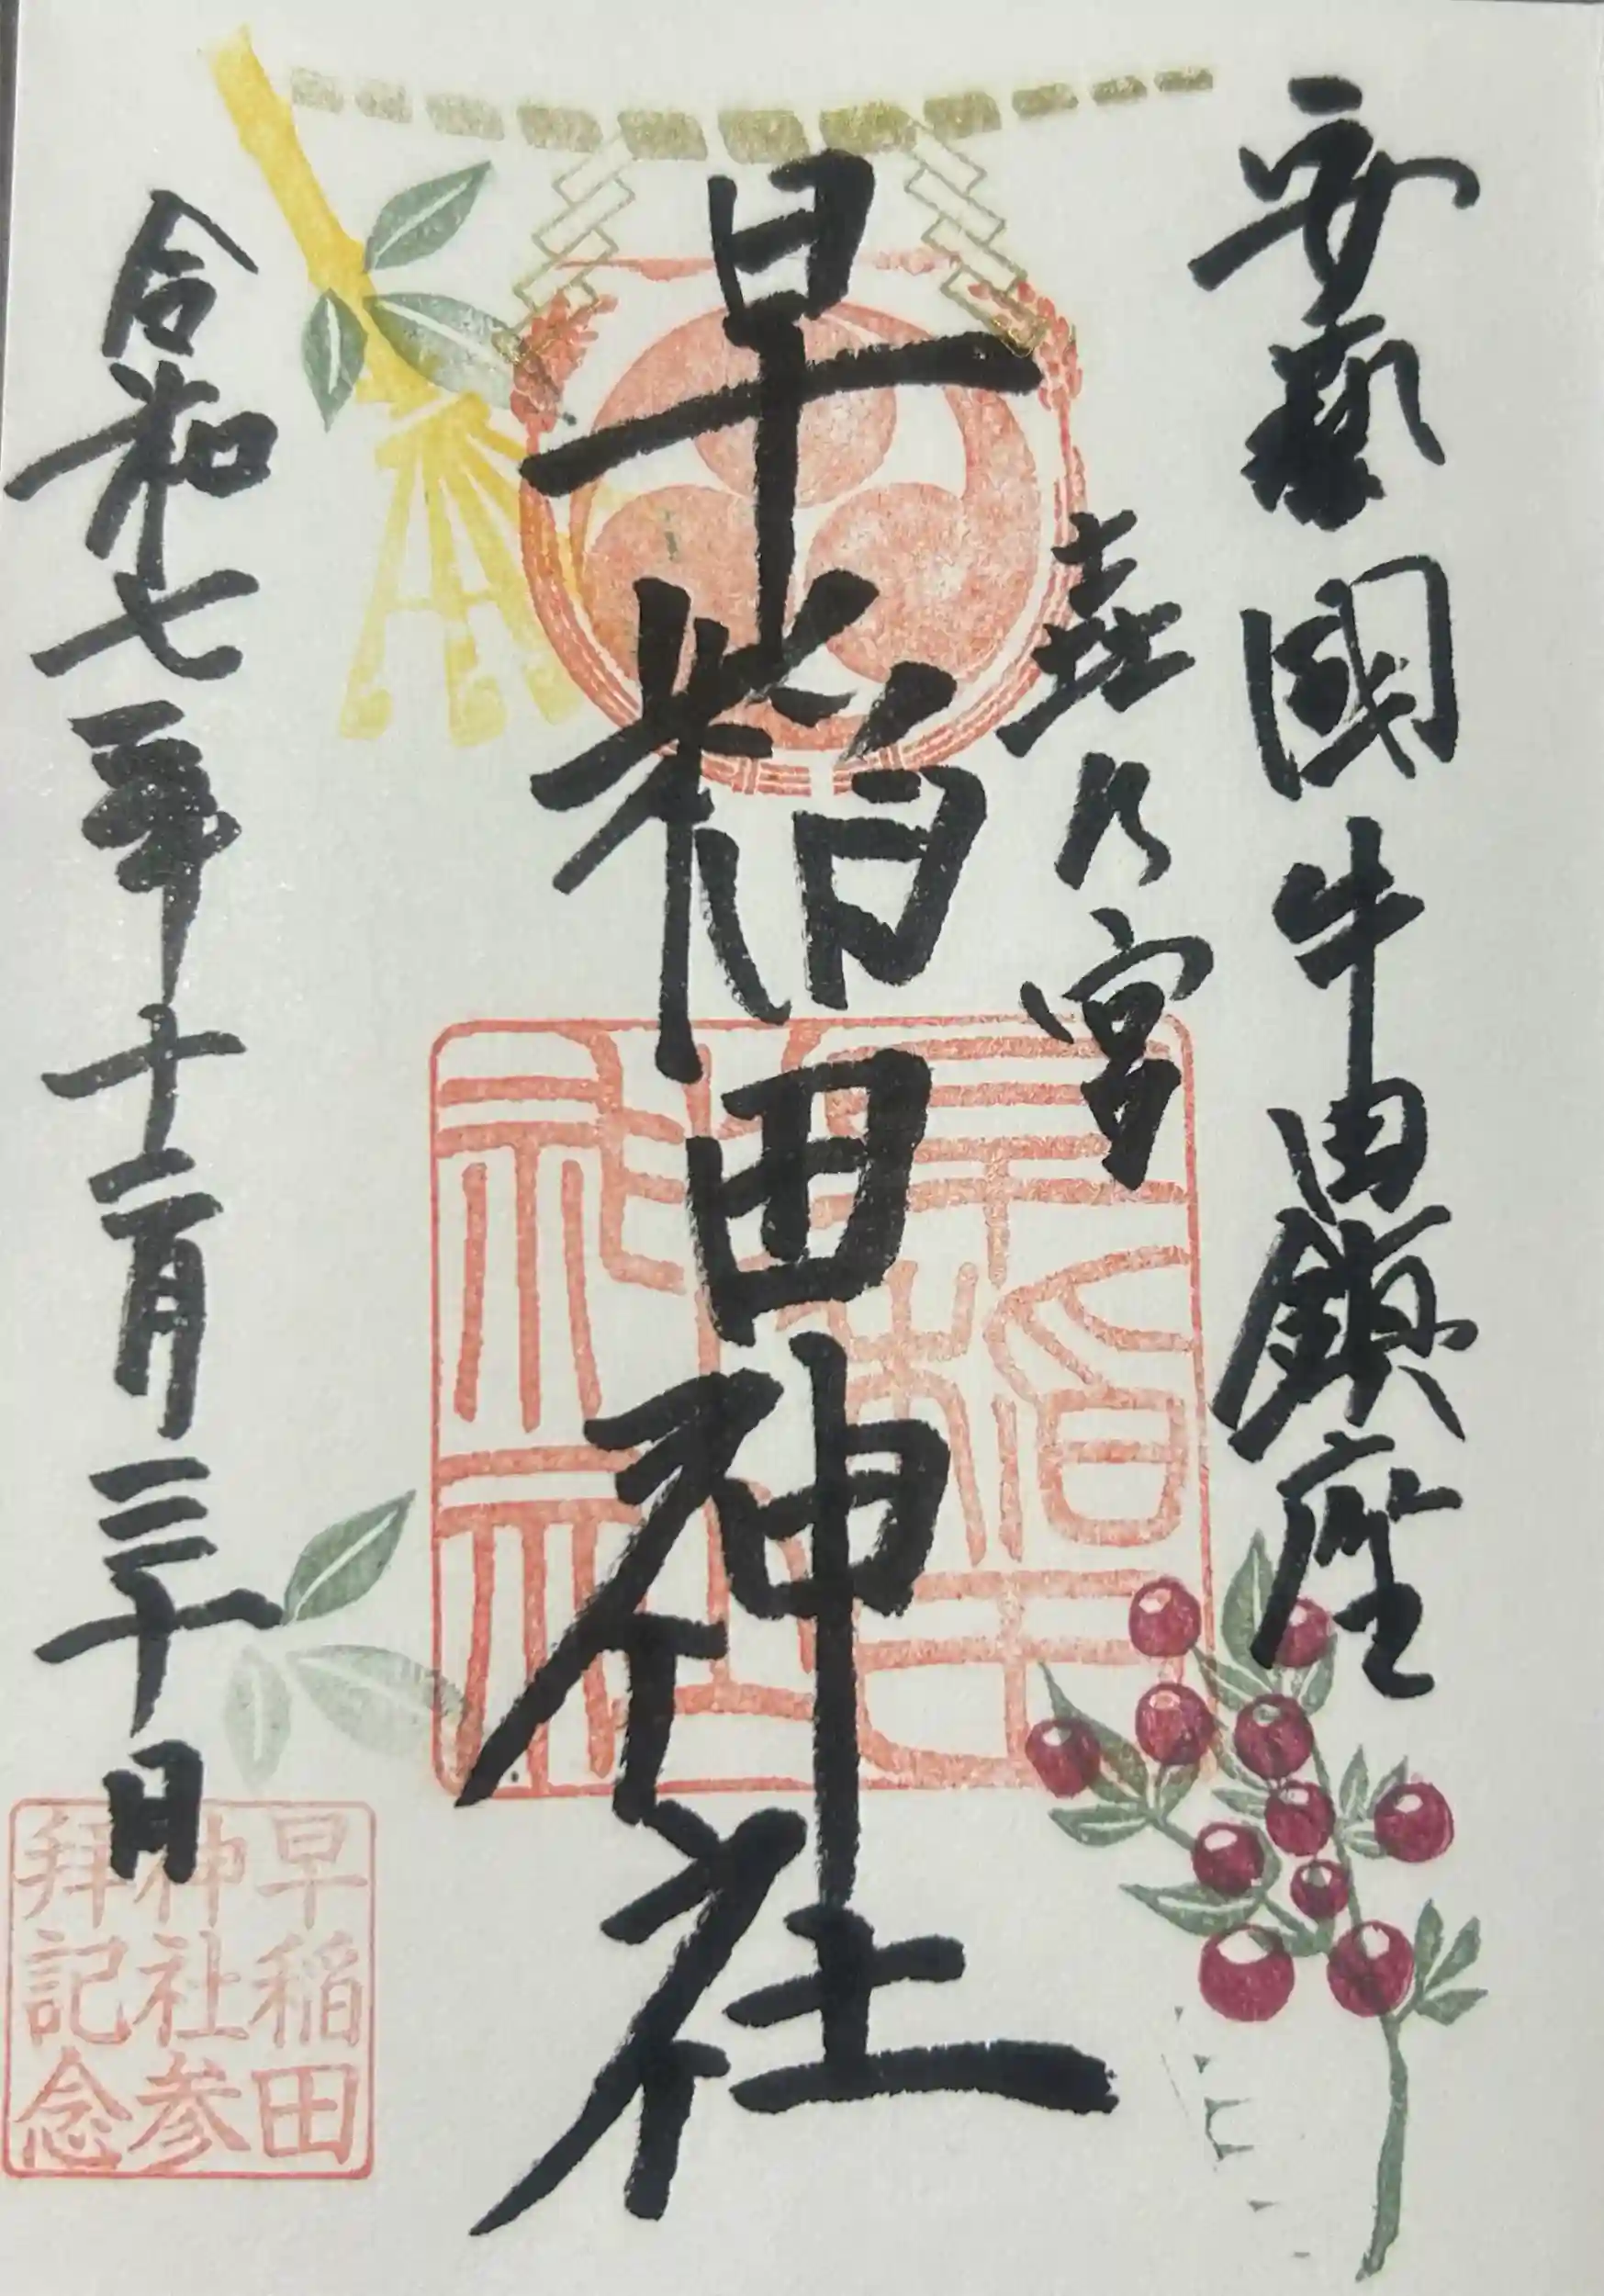 安藝國牛田鎮座
乃宮
早稲田神社
令和七年十二月三十日
早稲田
神社
早稲田
神社参
拝記念